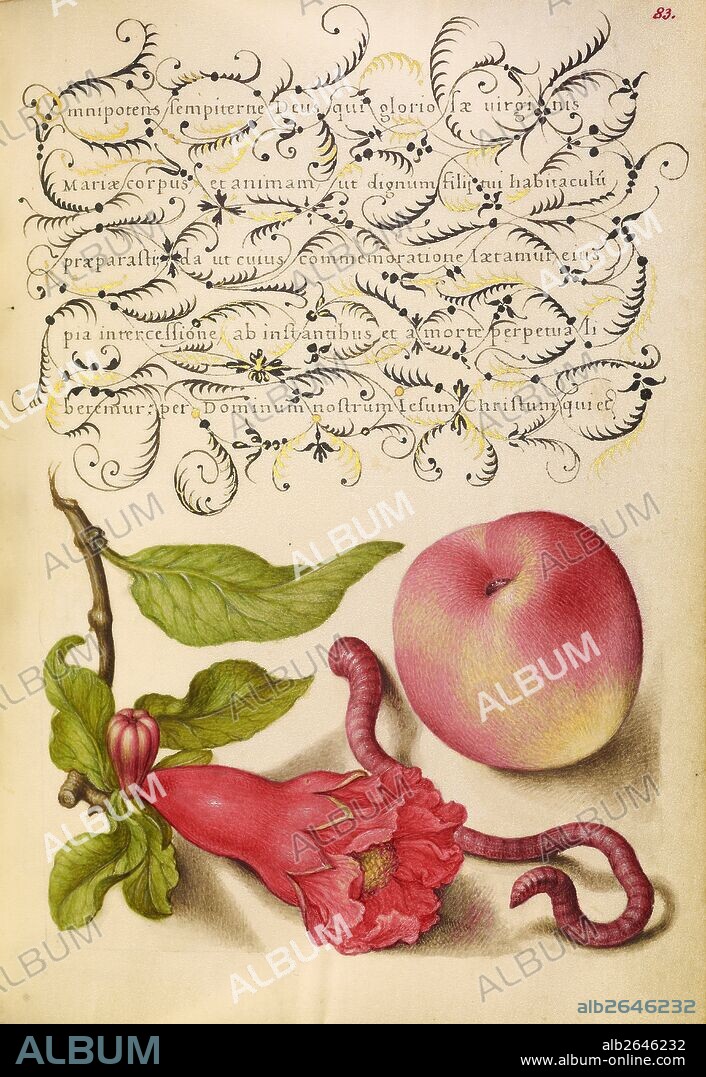 83.
Omnipotens sempiterne Deus, qui glorio sæ virginis
Mariæ corpus et animam ut dignum filij tui habitaculū
præparasti: da ut cuius commemoratione lætamur eius
pia intercessione ab instantibus et a morte perpetua li
beremur: per Dominum nostrum Iesum Christum qui et
ALBUM
alb2646232
ALBUM
alb2646232
album-online.com